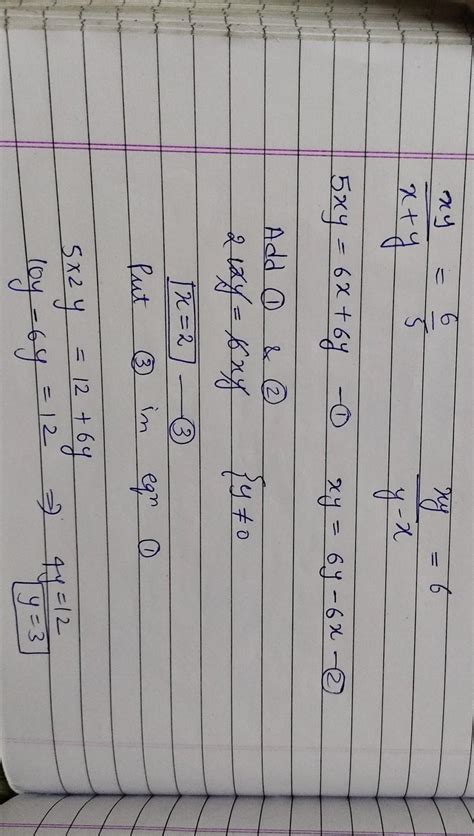 xy/(x+y) = 6/5    xy/(y-x) = 6
5xy = 6x+6y - ①    xy = 6y-6x - ②
Add ① & ②
12y = 6xy    {y ≠ 0
x=2 - ③
Put ③ in eqn ①
5x2y = 12+6y
10y = 6y = 12 ⇒ 4y=12
y=3